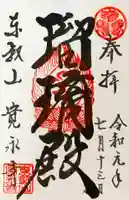 奉拝
令和元年
七月十三日
瑠璃殿
東叡山 寛永寺